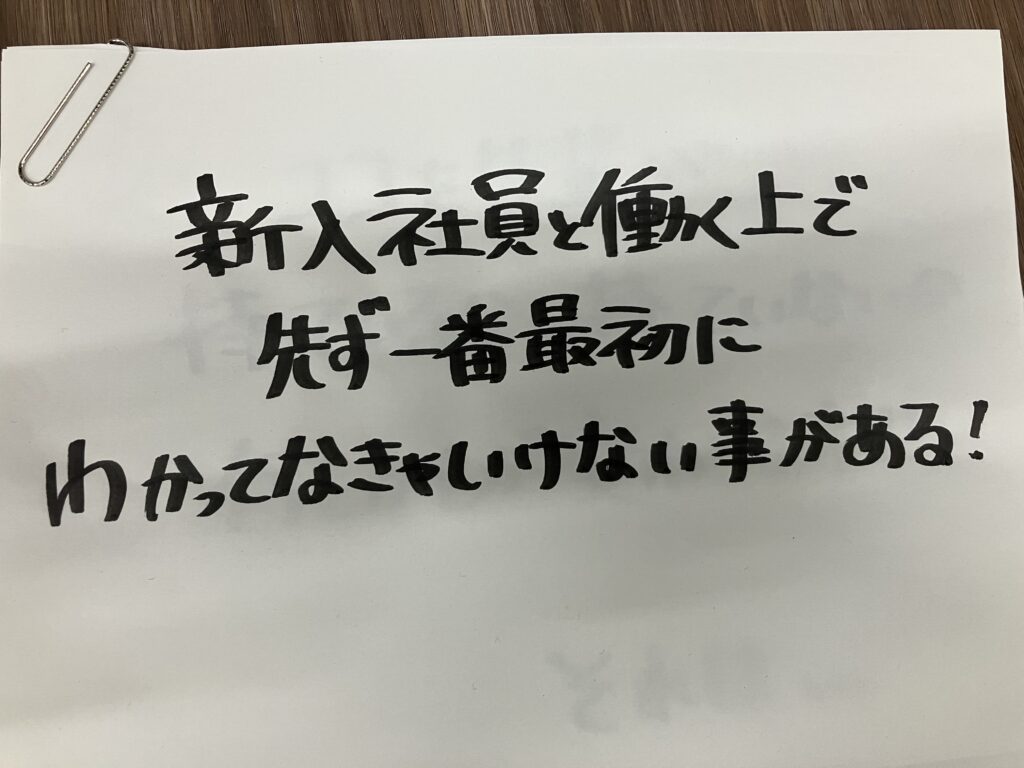 新入社員と働く上で
先ず一番最初に
わかってなきゃいけない事がある!